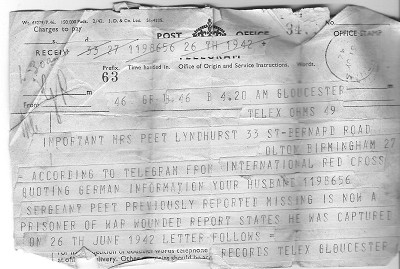 Charges to pay
POST OFFICE
OFFICE STAMP
RECEIPT
33 27 1198656 26 TH 1942 +
TELEGRAM
Prefix. Time handed in. Office of Origin and Service Instructions. Words.
63
From
46 GF 46 B 4.20 AM GLOUCESTER
TELEX OHMS 49
IMPORTANT MRS PEET LYNDHURST 33 ST-BERNARD ROAD
OLTON BIRMINGHAM 27
= ACCORDING TO TELEGRAM FROM INTERNATIONAL RED CROSS
QUOTING GERMAN INFORMATION YOUR HUSBAND 1198656
SERGEANT PEET PREVIOUSLY REPORTED MISSING IS NOW A
PRISONER OF WAR WOUNDED REPORT STATES HE WAS CAPTURED
ON 26 TH JUNE 1942 LETTER FOLLOWS =
RECORDS TELEX GLOUCESTER